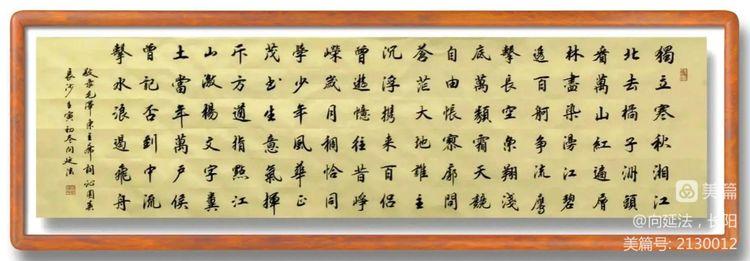 獨立寒秋湘江
北去橘子洲頭
看萬山紅遍層
林盡染漫江碧
透百舸争流鷹
擊長空魚翔淺
底萬類霜天競
自由悵寥廓問
蒼茫大地誰主
沉浮携来百侣
曾遊憶往昔崢
嶸歲月稠恰同
學少年風華正
茂书生意氣揮
斥方遒指點江
山激揚文字糞
土當年萬户侯
曾記否到中流
擊水浪遏飛舟
敬录毛澤東主席詞沁園春
長沙壬寅初冬向延法
美篇
@向延法，长阳
美篇号: 2130012